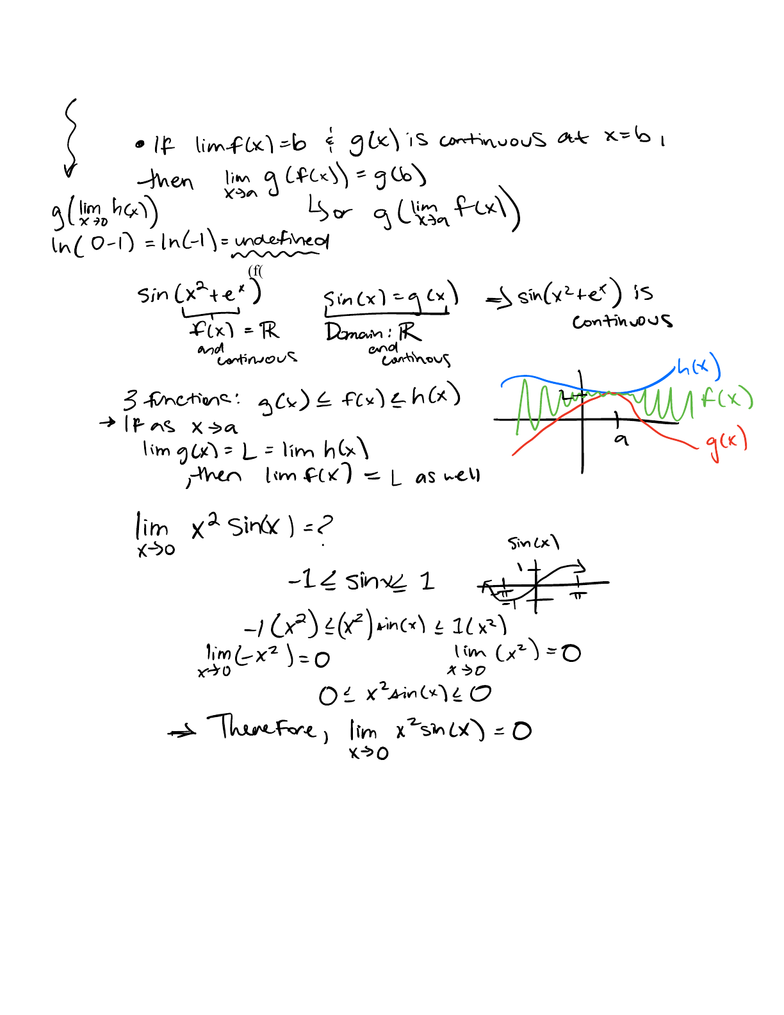 • If lim f(x) = b & g(x) is continuous at x=b,
then lim x→a g(f(x)) = g(b)
↳ or g(lim x→a f(x))
g(lim x→0 h(x))
ln(0-1) = ln(-1) = undefined
(f(
sin(x² + eˣ) sin(x) = g(x) ⇒ sin(x² + eˣ) is continuous
f(x) = ℝ and continuous
Domain: ℝ and continous
3 functions: g(x) ≤ f(x) ≤ h(x)
→ If as x→a
lim g(x) = L = lim h(x)
, then lim f(x) = L as well
h(x)
f(x)
g(x)
L
a
lim x→0 x² sin(x) = ?
sin(x)
1
-1
-π
π
-1 ≤ sinx ≤ 1
-1(x²) ≤ (x²) sin(x) ≤ 1(x²)
lim x→0 (-x²) = 0 lim x→0 (x²) = 0
0 ≤ x² sin(x) ≤ 0
→ Therefore, lim x→0 x² sin(x) = 0